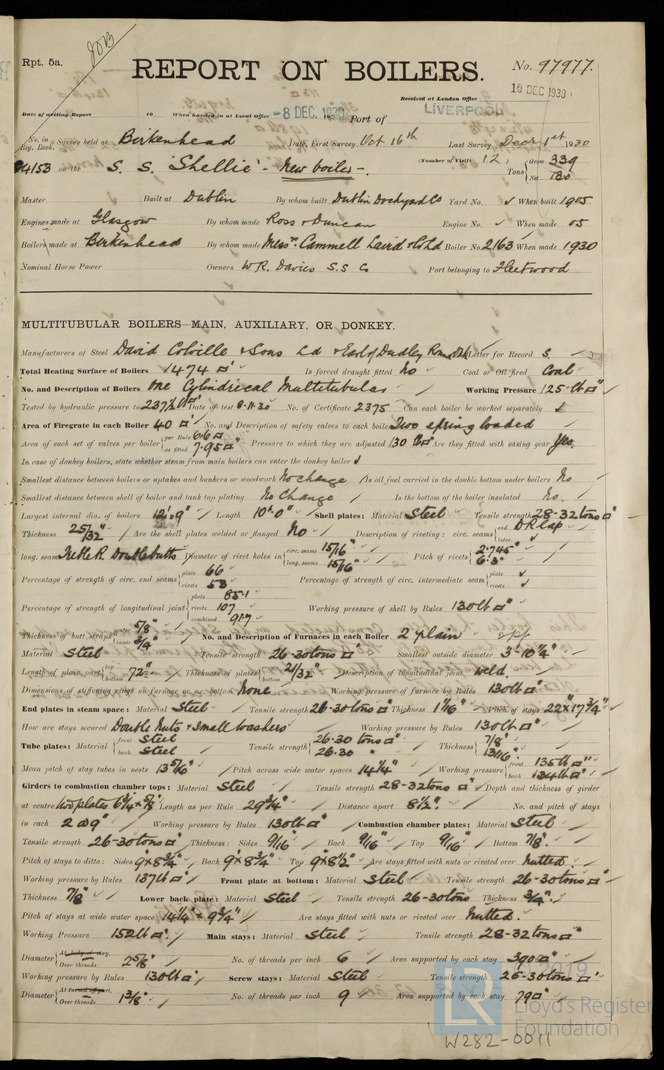 Rpt. 5a.
REPORT ON BOILERS.
No. 97977.
10 DEC 1930
Received at London Office
Date of writing Report 19 When handed in at Local Office -8 DEC. 1930 Port of LIVERPOOL
No. in Reg. Book. Survey held at Birkenhead Date, First Survey Oct 16th Last Survey Decr 1st 1930
84153 on the S. S. "Shellie" - New boiler -. (Number of Visits 12) Tons Gross 339 Net 130
Master Built at Dublin By whom built Dublin Dockyard Co Yard No. ✓ When built 1905
Engines made at Glasgow By whom made Ross & Duncan Engine No. ✓ When made 05
Boilers made at Birkenhead By whom made Messrs Cammell Laird & Co Ld Boiler No. 2163 When made 1930
Nominal Horse Power Owners W R. Davies S.S Co Port belonging to Fleetwood
MULTITUBULAR BOILERS—MAIN, AUXILIARY, OR DONKEY.
Manufacturers of Steel David Colville & Sons Ld & Earl of Dudley Letter for Record S.
Total Heating Surface of Boilers 1474 □' Is forced draught fitted No Coal or Oil fired Coal
No. and Description of Boilers One Cylindrical Multitubular Working Pressure 125 lb □"
Tested by hydraulic pressure to 237½ lb □" Date of test 6.11.30 No. of Certificate 2375 Can each boiler be worked separately ✓
Area of Firegrate in each Boiler 40 □' No. and Description of safety valves to each boiler Two spring loaded
Area of each set of valves per boiler per Rule 6.6 □" as fitted 7.95 □" Pressure to which they are adjusted 130 lb □" Are they fitted with easing gear Yes
In case of donkey boilers, state whether steam from main boilers can enter the donkey boiler ✓
Smallest distance between boilers or uptakes and bunkers or woodwork No change Is oil fuel carried in the double bottom under boilers No
Smallest distance between shell of boiler and tank top plating No Change Is the bottom of the boiler insulated No.
Largest internal dia. of boilers 12'.9" Length 10'.0" Shell plates: Material Steel Tensile strength 28-32 tons □"
Thickness 25/32" Are the shell plates welded or flanged No Description of riveting: circ. seams end D R lap inter. ✓
long. seams Treble R. Double butts Diameter of rivet holes in circ. seams 15/16" long. seams 15/16" Pitch of rivets 2.745" 6.3"
Percentage of strength of circ. end seams plate 66 rivets 53 Percentage of strength of circ. intermediate seam plate ✓ rivets ✓
Percentage of strength of longitudinal joint plate 85.1 rivets 107 combined 91.7 Working pressure of shell by Rules 130 lb □"
Thickness of butt straps outer 5/8" inner 3/4" No. and Description of Furnaces in each Boiler 2 plain
Material Steel Tensile strength 26-30 tons □" Smallest outside diameter 3'-10¼"
Length of plain part top bottom 72" Thickness of plates bottom 21/32" Description of longitudinal joint weld.
Dimensions of stiffening rings on furnace or c.c. bottom None Working pressure of furnace by Rules 130 lb □"
End plates in steam space: Material Steel Tensile strength 26-30 tons □" Thickness 1 1/16" Pitch of stays 22" x 17¾"
How are stays secured Double Nuts & small washers Working pressure by Rules 130 lb □"
Tube plates: Material front Steel back Steel Tensile strength 26-30 tons □" 26-30 " Thickness 7/8" 13/16"
Mean pitch of stay tubes in nests 13 5/16" Pitch across wide water spaces 14¼" Working pressure front 135 lb □" back 134 lb □"
Girders to combustion chamber tops: Material Steel Tensile strength 28-32 tons □" Depth and thickness of girder
at centre Length as per Rule 29¾" Distance apart 8½" No. and pitch of stays
in each 2 @ 9" Working pressure by Rules 130 lb □" Combustion chamber plates: Material Steel
Tensile strength 26-30 tons □" Thickness: Sides 9/16" Back 9/16" Top 9/16" Bottom 7/8"
Pitch of stays to ditto: Sides 9" x 8¾" Back 9" x 8¾" Top 9" x 8½" Are stays fitted with nuts or riveted over Nutted.
Working pressure by Rules 137 lb □" Front plate at bottom: Material Steel Tensile strength 26-30 tons □"
Thickness 7/8" Lower back plate: Material Steel Tensile strength 26-30 tons Thickness 3/4"
Pitch of stays at wide water space 14¼" x 9¾" Are stays fitted with nuts or riveted over Nutted.
Working Pressure 152 lb □" Main stays: Material Steel Tensile strength 28-32 tons □"
Diameter At body of stay, Over threads 2 5/8" No. of threads per inch 6 Area supported by each stay 390 □"
Working pressure by Rules 130 lb □" Screw stays: Material Steel Tensile strength 26-30 tons □"
Diameter At turned off part, Over threads 1 3/8" No. of threads per inch 9 Area supported by each stay 79 □"
Lloyd's Register
Foundation
W282-0011